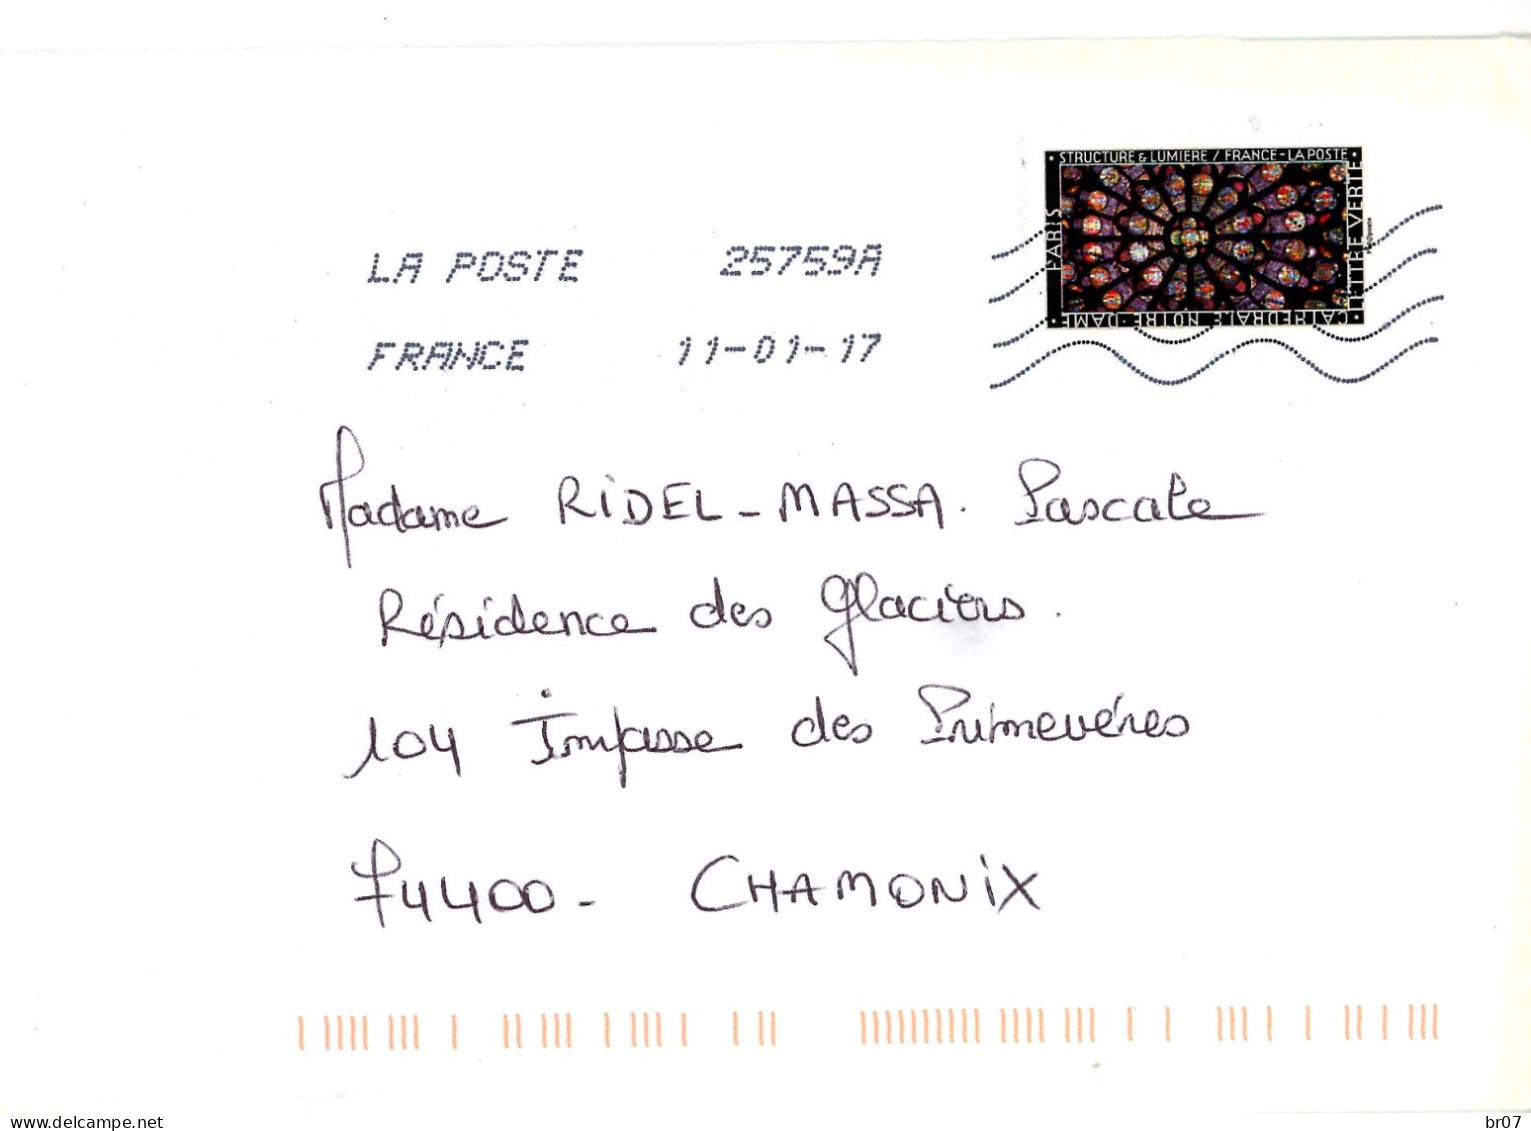 STRUCTURE & LUMIERE / FRANCE - LA POSTE
PARIS
LETTRE VERTE
CATHEDRALE NOTRE-DAME
LA POSTE 25759A
FRANCE 11-01-17
Madame RIDEL-MASSA. Pascale
Résidence des Glaciers.
104 Impasse des Primevères
74400 - CHAMONIX
www.delcampe.net
br07